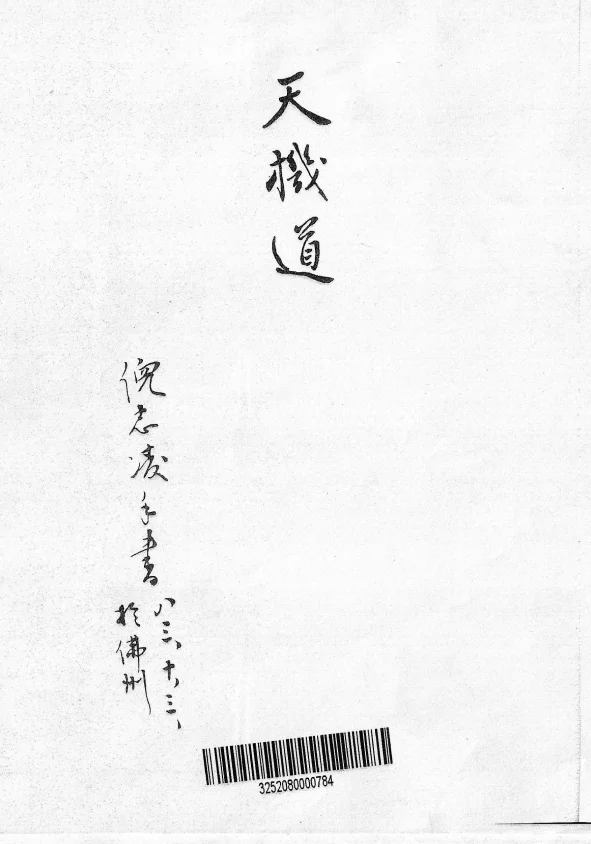 天機道
倪志凌手書
八三、十、三、
於佛州
3252080000784